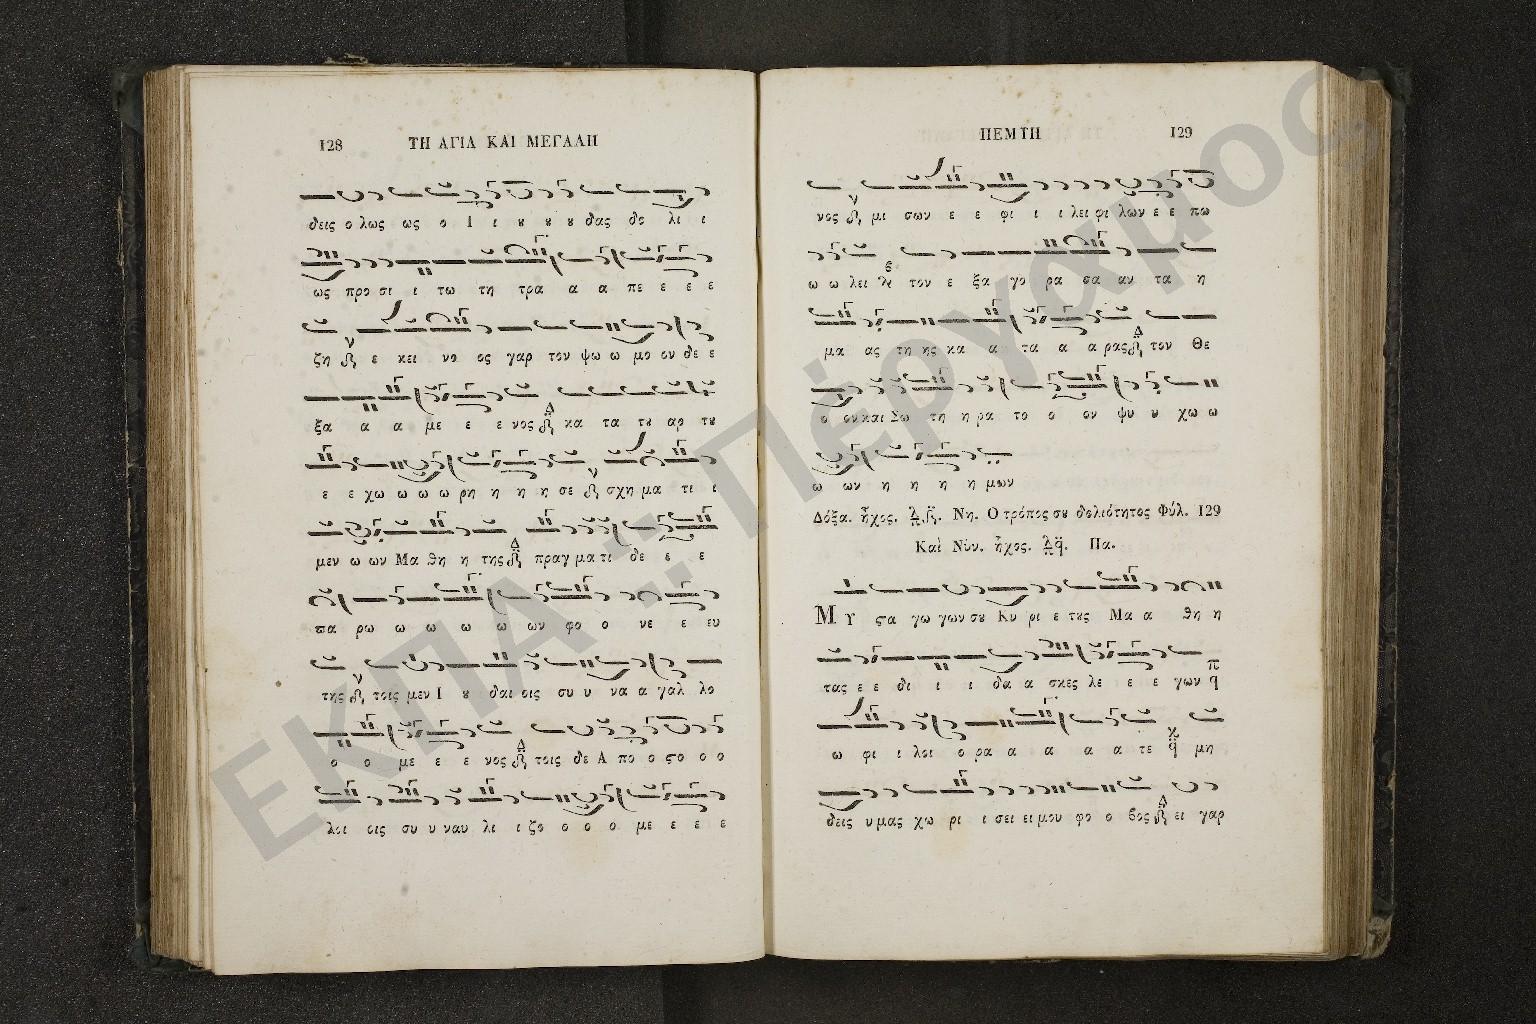 128 ΤΗ ΑΓΙΑ ΚΑΙ ΜΕΓΑΛΗ
δεις ο λως ως ο Ι ι ȣ ȣ ȣ δας δο λι ι
ως προ σι ι τω τη τρα α α πε ε ε ε
ζη ε κει νο ος γαρ τον ψω ω μο ον δε ε
ξα α α με ε ε νος κα τα τȣ αρ τȣ
ε ε χω ω ω ω ρη η η η σε σχη μα τι ι
μεν ω ων Μα θη η της πραγ μα τι δε ε ε
πα ρω ω ω ω ω ων φο ο νε ε ευ
της τοις μεν Ι ȣ δαι οις συ υ να α γαλ λο
ο ο με ε ε νος τοις δε Α πο ο ϛο ο ο
λοι οις συ υ ναυ λι ι ζο ο ο ο με ε ε ε
ΠΕΜΤΗ 129
νος μι σων ε ε φι ι ι λει φι λων ε ε πω
ω ω λει τον ε ξα γο ρα σα αν τα η
μα ας τη ης κα α τα α α ρας τον Θε
ο ον και Σω τη η ρα το ο ον ψυ υ χω ω
ω ων η η η η μων
Δόξα. ἦχος. Νη. Ο τρόπος σȣ δολιότητος Φύλ. 129
Καὶ Νῦν. ἦχος. Πα.
Μ Υ ϛα γω γων σȣ Κυ ρι ε τȣς Μα α θη η
τας ε ε δι ι ι δα α σκες λε ε ε γων
ω φι ι λοι ο ρα α α α α τε μη
δεις υ μας χω ρι ι σει ει μου φο ο βος ει γαρ
ΕΚΠΑ :: Πέργαμος